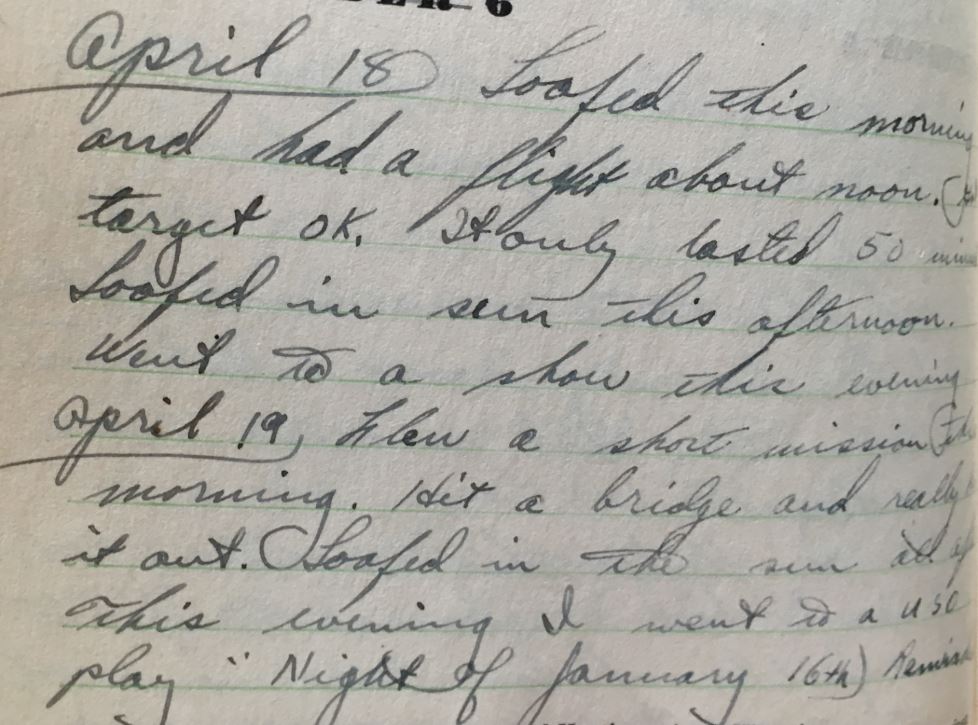 April 18 Loafed this
and had a flight about noon.
target OK. It only lasted 50
Loafed in sun this afternoon.
Went to a show this evening
April 19, Flew a short mission
morning. Hit a bridge and really
it out. Loafed in the sun all
This evening I went to a USO
play "Night of January 16th)